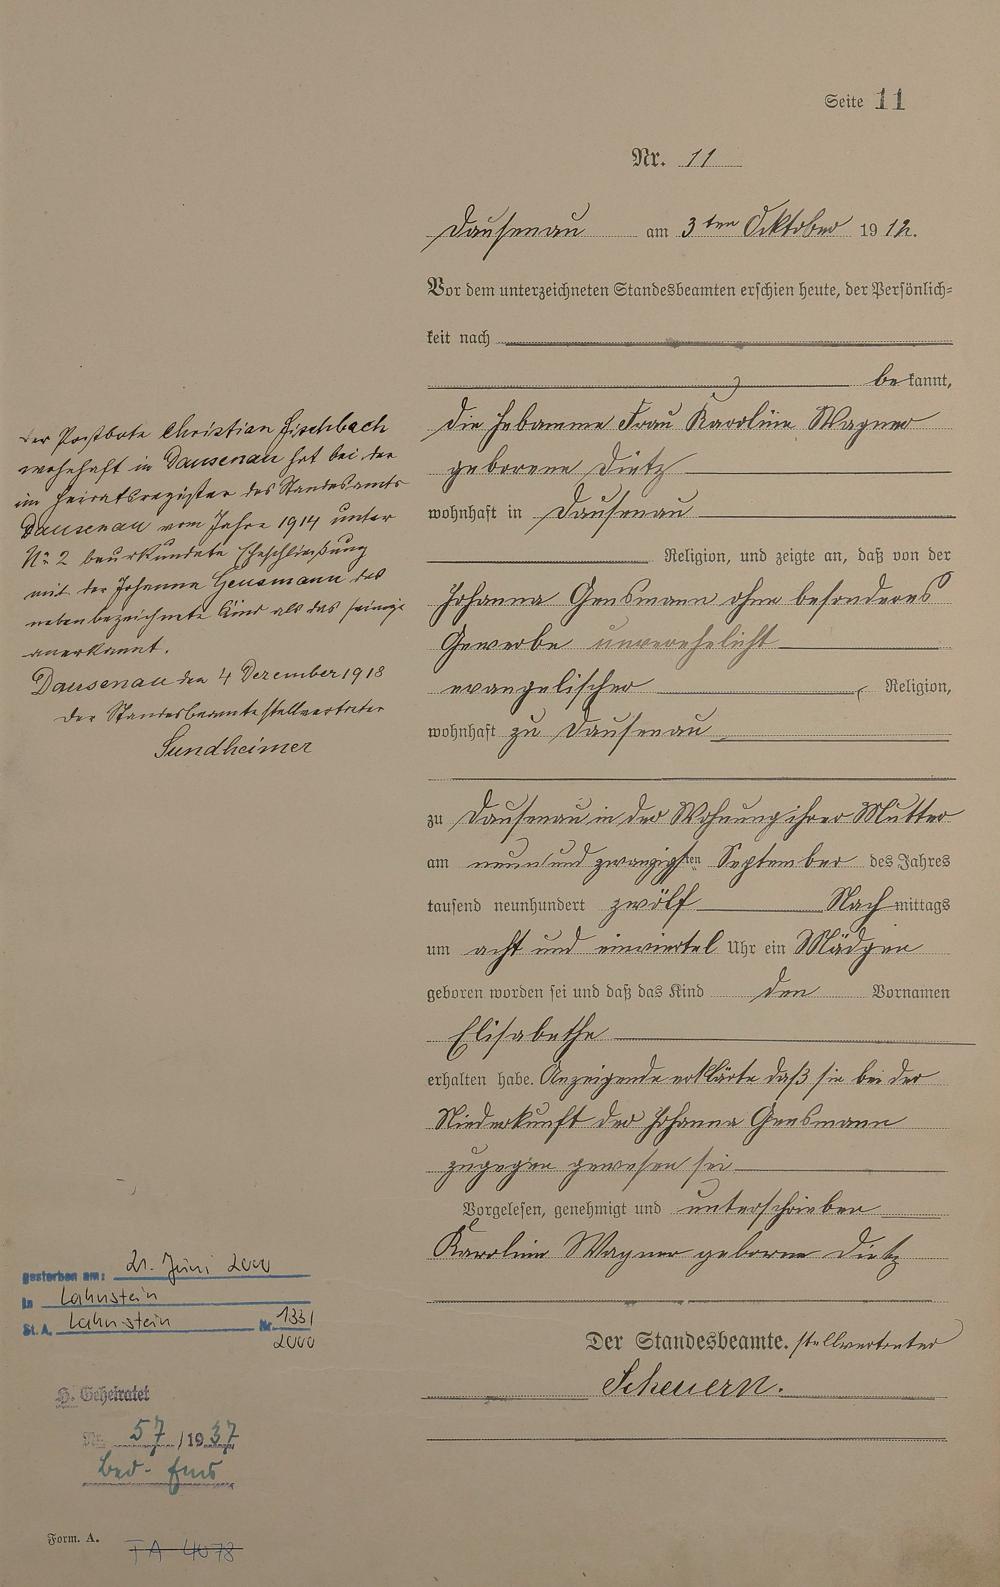 Seite 11
Nr. 11
Dausenau am 3ten Oktober 1912.
Vor dem unterzeichneten Standesbeamten erschien heute, der Persönlich-
keit nach
bekannt,
die Hebamme Frau Karoline Wagner
geborene Dietz
wohnhaft in Dausenau
Religion, und zeigte an, daß von der
Johanna Gensmann ohne besonderes
Gewerbe unverehelicht
evangelischer Religion,
wohnhaft zu Dausenau
zu Dausenau in der Wohnung ihrer Mutter
am neun und zwanzigsten September des Jahres
tausend neunhundert zwölf Nachmittags
um acht und einviertel Uhr ein Mädgen
geboren worden sei und daß das Kind den Vornamen
Elisabethe
erhalten habe. Anzeigende erklärte daß sie bei der
Niederkunft der Johanna Gensmann
zugegen gewesen sei
Vorgelesen, genehmigt und unterschrieben
Karoline Wagner geborne Dietz
Der Standesbeamte. stellvertreter
Scheuern.
Der Postbote Christian Fischbach
wohnhaft in Dausenau hat bei der
im Heiratsregister des Standesamts
Dausenau vom Jahre 1914 unter
No 2 beurkundete Eheschließung
mit der Johanna Gensmann das
nebenbezeichnete Kind als das seinige
anerkannt.
Dausenau den 4 Dezember 1918
Der Standesbeamte stellvertreter
Sundheimer
gestorben am: 21. Juni 2000
in Lahnstein
St. A. Lahnstein Nr. 133/
2000
H. Geheiratet
Nr. 57/1937
Bad-Ems
Form. A.
FA 4078